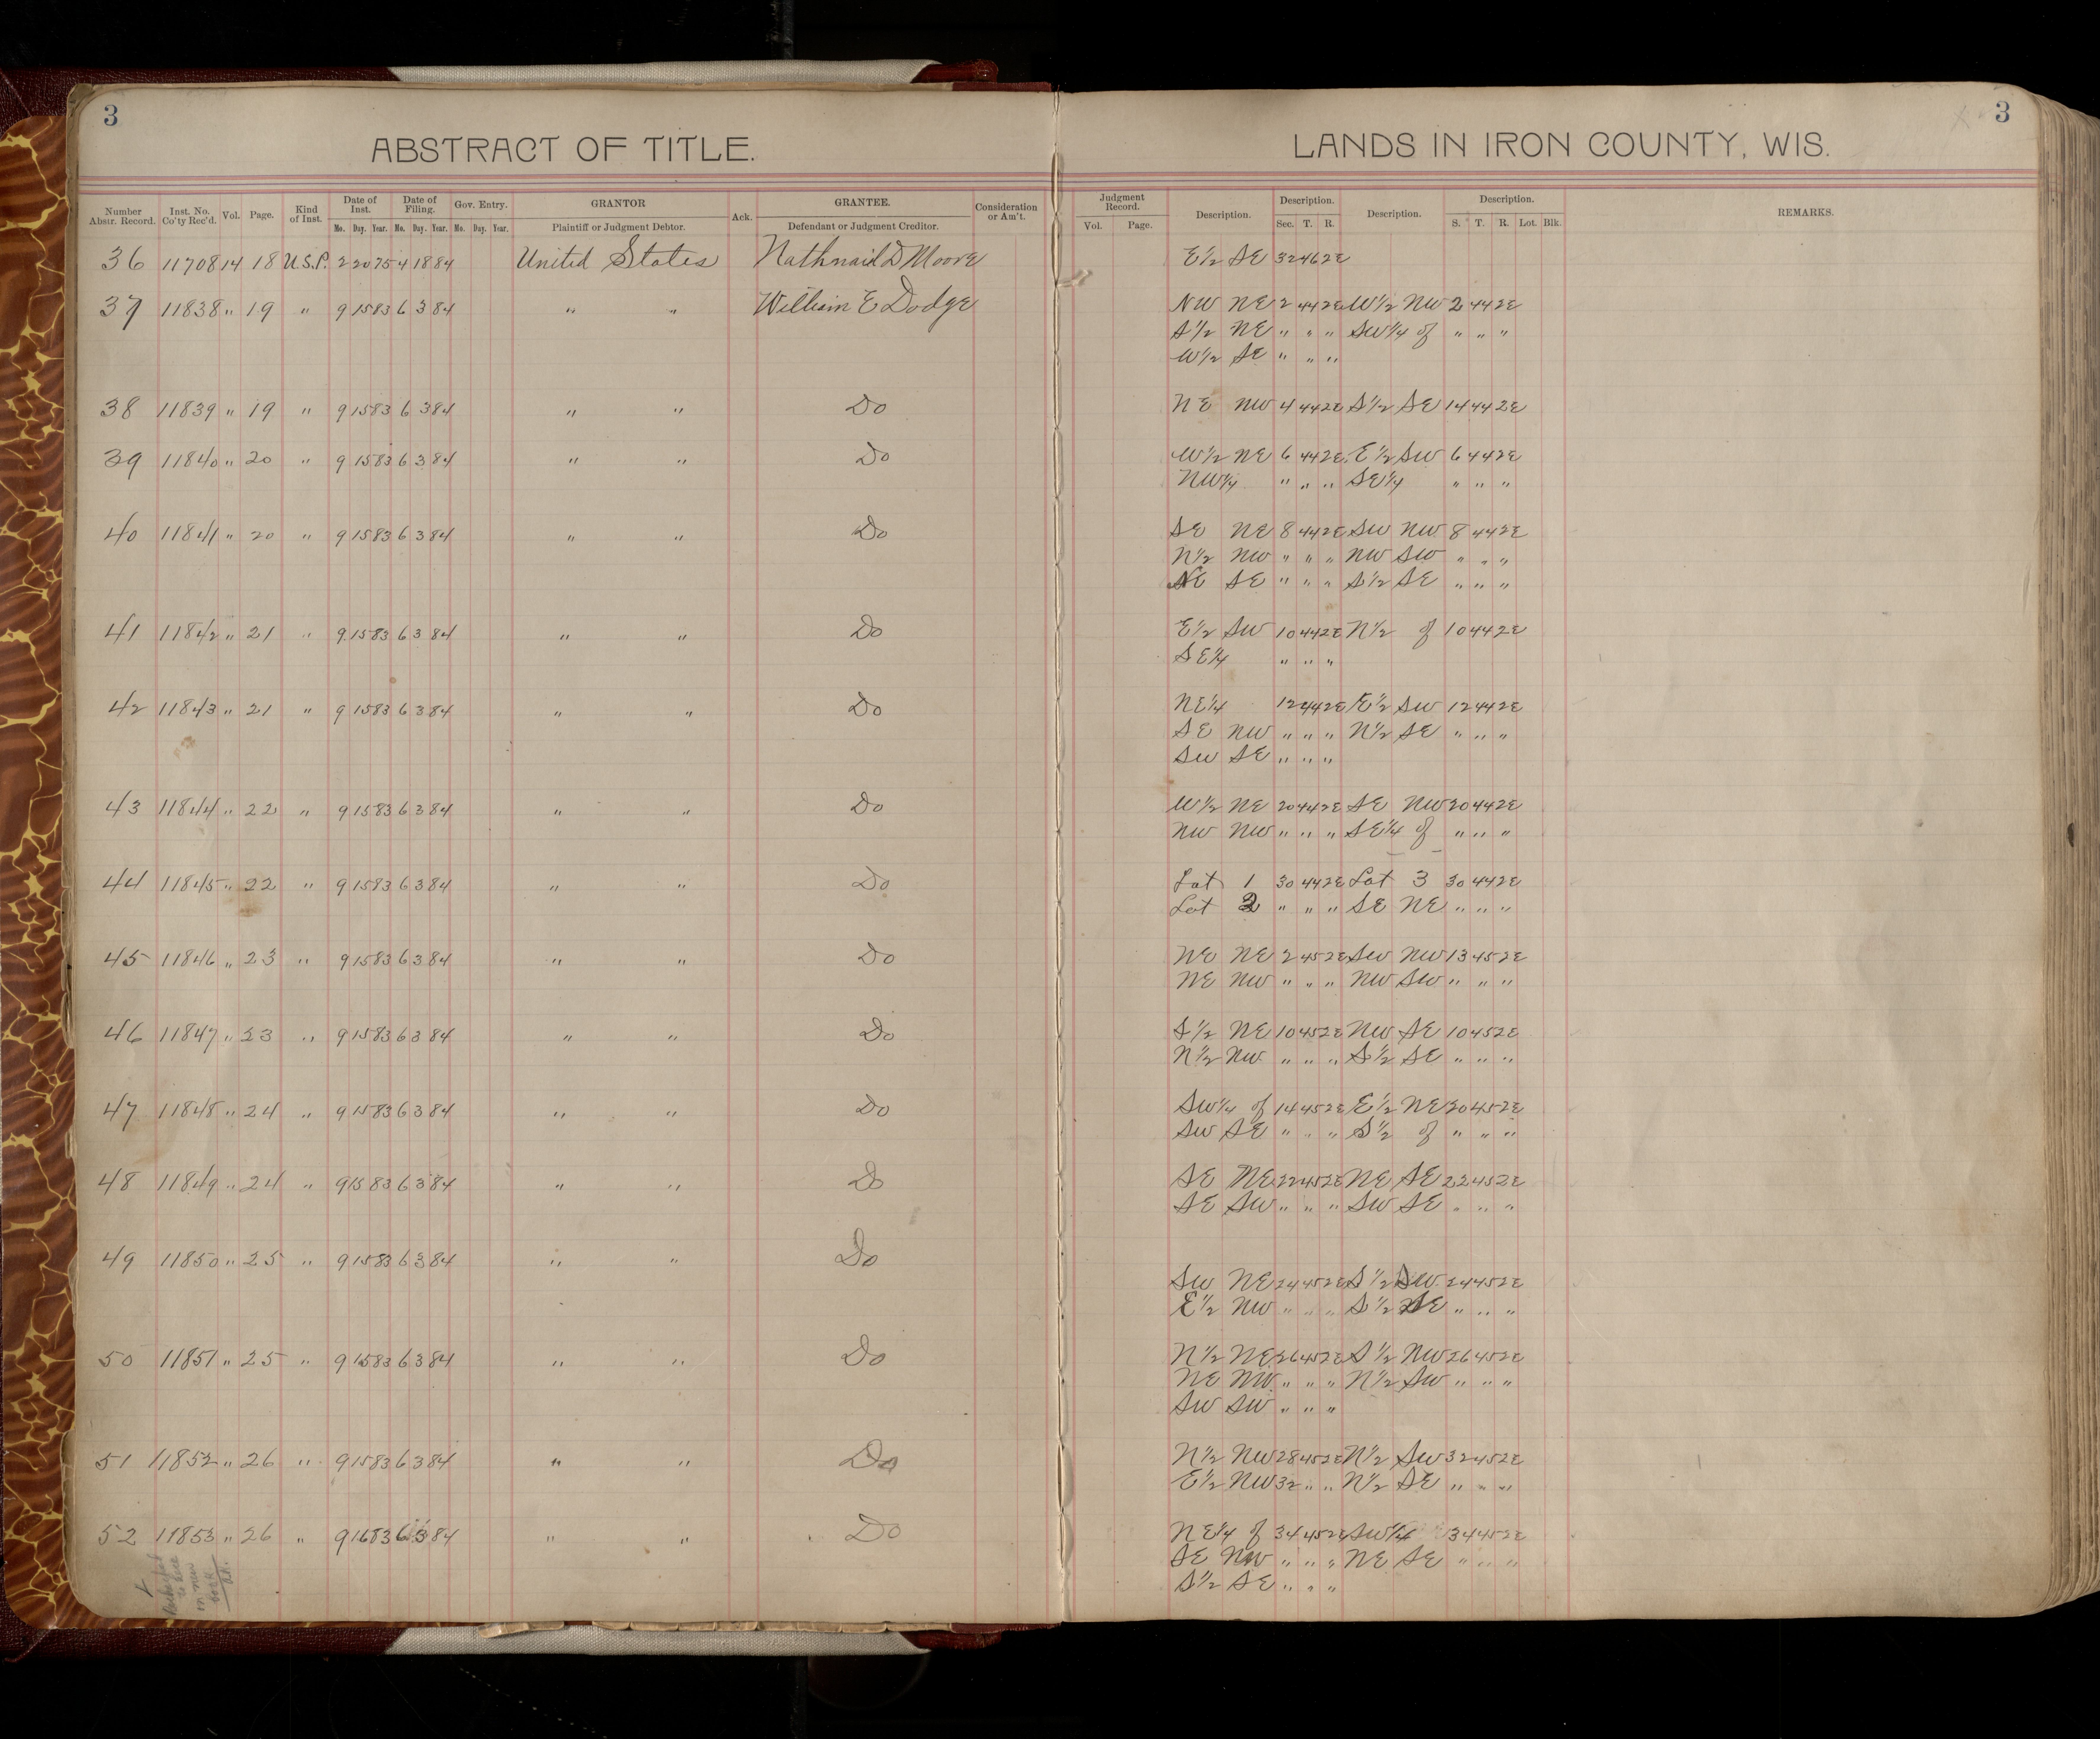 3
3
ABSTRACT OF TITLE.
LANDS IN IRON COUNTY, WIS.
Number Abstr. Record. Inst. No. Co'ty Rec'd. Vol. Page. Kind of Inst. Date of Inst. Date of Filing. Gov. Entry. GRANTOR Ack. GRANTEE. Consideration or Am't. Judgment Record. Description. Description. Description. Description. REMARKS.
Mo. Day. Year. Mo. Day. Year. Mo. Day. Year. Plaintiff or Judgment Debtor. Defendant or Judgment Creditor. Vol. Page. Sec. T. R. S. T. R. Lot. Blk.
36 11708 14 18 U.S.P. 2 20 75 4 18 84 United States Nathnail D Moore E½ SE 32 46 2E
37 11838 " 19 " 9 15 83 6 3 84 " " William E Dodge NW NE 2 44 2E W½ NW 2 44 2E
S½ NE " " " SW¼ of " " "
W½ SE " " "
38 11839 " 19 " 9 15 83 6 3 84 " " Do NE NW 4 44 2E S½ SE 14 44 2E
39 11840 " 20 " 9 15 83 6 3 84 " " Do W½ NE 6 44 2E E½ SW 6 44 2E
NW¼ " " " SE¼ " " "
40 11841 " 20 " 9 15 83 6 3 84 " " Do SE NE 8 44 2E SW NW 8 44 2E
N½ NW " " " NW SW " " "
NE SE " " " S½ SE " " "
41 11842 " 21 " 9 15 83 6 3 84 " " Do E½ SW 10 44 2E N½ of 10 44 2E
SE¼ " " "
42 11843 " 21 " 9 15 83 6 3 84 " " Do NE¼ 12 44 2E E½ SW 12 44 2E
SE NW " " " N½ SE " " "
SW SE " " "
43 11844 " 22 " 9 15 83 6 3 84 " " Do W½ NE 20 44 2E SE NW 20 44 2E
NW NW " " " SE¼ of " " "
44 11845 " 22 " 9 15 83 6 3 84 " " Do Lot 1 30 44 2E Lot 3 30 44 2E
Lot 2 " " " SE NE " " "
45 11846 " 23 " 9 15 83 6 3 84 " " Do NE NE 2 45 2E SW NW 13 45 2E
NE NW " " " NW SW " " "
46 11847 " 23 " 9 15 83 6 3 84 " " Do S½ NE 10 45 2E NW SE 10 45 2E
N½ NW " " " S½ SE " " "
47 11848 " 24 " 9 15 83 6 3 84 " " Do SW¼ of 14 45 2E E½ NE 20 45 2E
SW SE " " " S½ of " " "
48 11849 " 24 " 9 15 83 6 3 84 " " Do SE NE 22 45 2E NE SE 22 45 2E
SE SW " " " SW SE " " "
49 11850 " 25 " 9 15 83 6 3 84 " " Do
SW NE 24 45 2E S½ SW 24 45 2E
E½ NW " " " S½ SE " " "
50 11851 " 25 " 9 15 83 6 3 84 " " Do N½ NE 26 45 2E S½ NW 26 45 2E
NE NW " " " N½ SW " " "
SW SW " " "
51 11852 " 26 " 9 15 83 6 3 84 " " Do N½ NW 28 45 2E N½ SW 32 45 2E
E½ NW 32 " " N½ SE " " "
52 11853 " 26 " 9 16 83 6 3 84 " " Do NE¼ of 34 45 2E SW¼ 34 45 2E
SE NW " " " NE SE " " "
S½ SE " " "
to here
in new
book